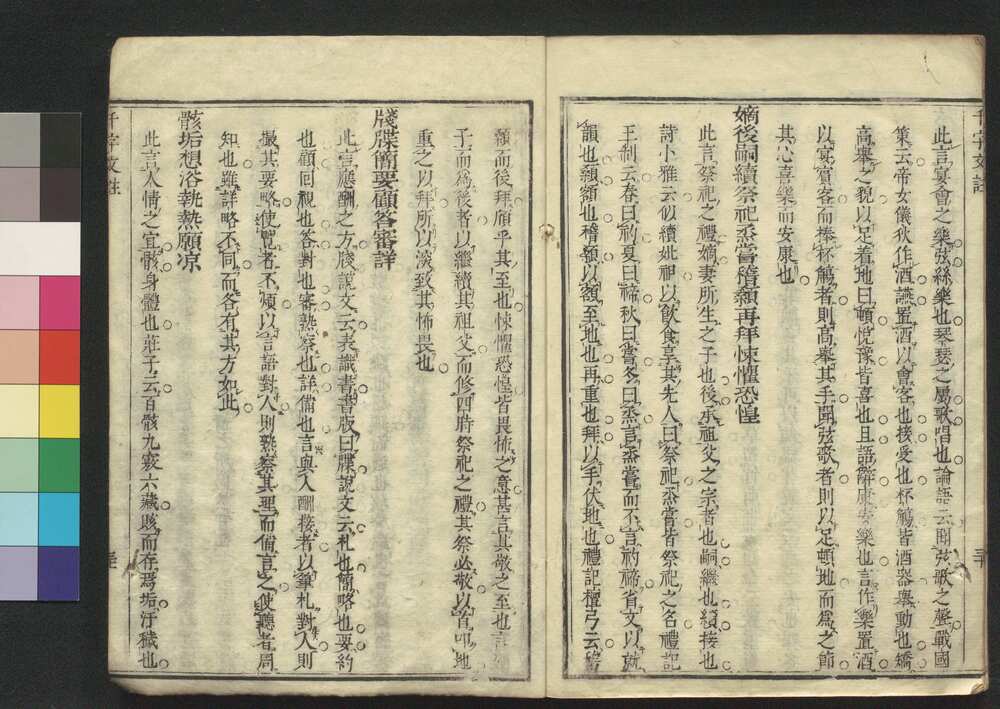 此言宴會之樂弦絲樂也琴瑟之屬歌唱也論語云聞弦歌之聲戰國
策云帝女儀狄作酒讌置酒以會客也接受也杯觴皆酒器舉動也矯
高舉之貌以足着地曰頓悅豫皆喜也且語辭康安樂也言作樂置酒
以宴賓客而捧杯觴者則高舉其手聞弦歌者則以足頓地而爲之節
其心喜樂而安康也
嫡後嗣續祭祀烝嘗稽顙再拜悚懼恐惶
此言祭祀之禮嫡妻所生之子也後承祖父之宗者也嗣繼也續接也
詩小雅云似續妣祖以飲食享其先人曰祭祀烝嘗皆祭祀之名禮記
王制云春曰礿夏曰禘秋曰嘗冬曰烝言烝嘗而不言礿禘省文以就
韻也顙額也稽顙以額至地也再重也拜以手伏地也禮記檀弓云稽
顙而後拜頎乎其至也悚懼恐惶皆畏怖之意甚言其敬之至也言
子而爲後者以繼續其祖父而修四時祭祀之禮其祭必敬以首叩地
重之以拜所以深致其怖畏也
牋牒簡要顧答審詳
此言應酬之方牋說文云表識書書版曰牒說文云札也簡略也要約
也顧回視也答對也審熟察也詳備也言與人酬接者以筆札對人則
撮其要略使覽者不煩以言語對人則熟察其理而備言之使聽者周
知也雖詳略不同而各有其方如此
骸垢想浴執熱願凉
此言人情之宜骸身體也莊子云百骸九竅六藏賅而存焉垢汙穢也
千字文註
千字文註